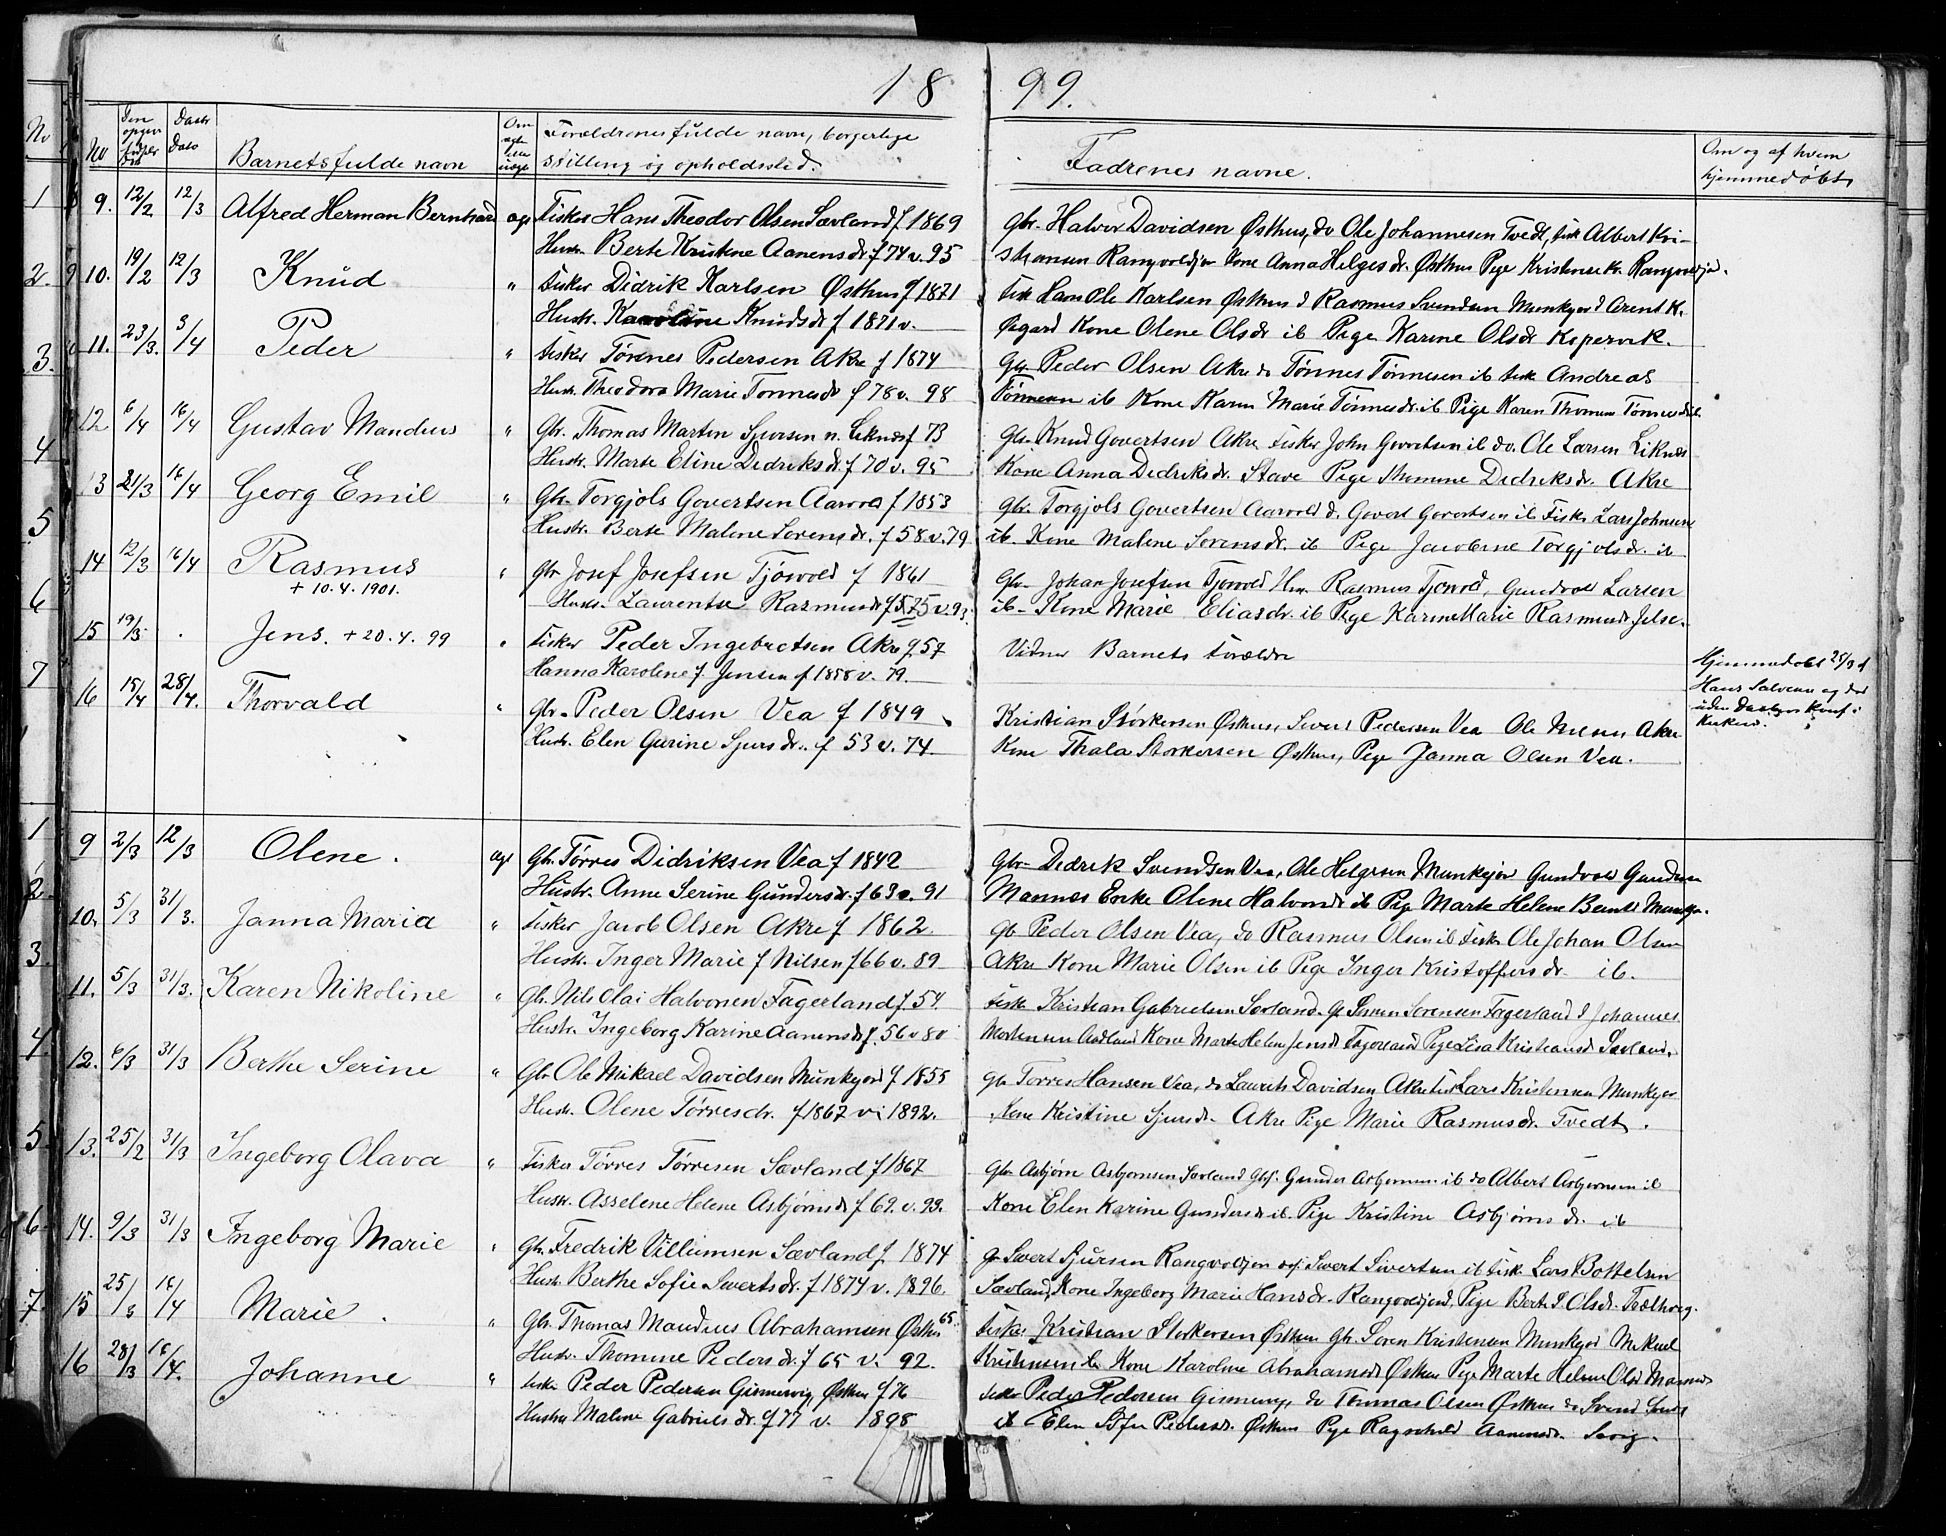 18 99.
No
Barnets fulde navn
Forældrenes fulde navn, borgerlige
stilling og opholdssted.
Fadrenes navne.
Om og af hvem
hjemmedøbt
9. 12/2 12/3 Alfred Herman Bernhard ægt Fisker Hans Theodor Olsen Sævland f 1869
Gbr. Halvor Davidsen Østhus, do Ole Johannesen Tvedt, fisk Albert Kri-
Hustr. Berte Kristine Aanensdr. f 74 v. 95
stiansen Rangvoldjør Kone Anna Helgesdr. Østhus Pige Kristense Kr. Rangvoldjø.
10. 19/2 12/3 Knud " fisker Didrik Karlsen Østhus f 1871
fisk Hans Ole Karlsen Østhus d Rasmus Svendsen Munkejor d Arent K.
Hustr. Karoline Knudsdr f 1871 v.
Øygard Kone Olene Olsdr ib Pige Karine Olsdr Kopervik.
11. 23/3. 3/4 Peder " fisker Tønnes Pedersen Akre f 1874
Gbr Peder Olsen Akre do Tønnes Tønnesen ib fisk Andreas
Hustr. Theodora Marie Tonnesdr f 78 v. 98
Tønnesen ib Kone Karen Marie Tønnesdr. ib Pige Karen Thomine Tønnesdr ib.
12 6/4 16/4 Gustav Mandius " Gbr. Thomas Martin Sjursen n. Liknes f 73
Gbr Knud Govertsen Akre Fisker John Govertsen ib do. Ole Larsen Liknes
Hustr. Marte Eline Didriksdr. f 70 v. 95
Kone Anna Didriksdr. Stave Pige Thomine Didriksdr. Akre
13 21/3 16/4 Georg Emil " Gbr. Torgjols Govertsen Aarvold f 1853
Gbr. Torgjols Govertsen Aarvold d. Govert Govertsen ib Fisk. Lars Johnsen
Hustr. Berte Malene Sorensdr. f 58 v. 79
ib. Kone Malene Sorensdr. ib Pige Jacobine Torgjolsdr. ib
14 12/3 16/4 Rasmus " Gbr Josef Josefsen Tjøsvold f 1861
+ 10.4.1901.
Gbr. Johan Josefsen Tjosvold Rasmus Tjosvold, Gundvold Larsen
Hustr. Laurentse Rasmusdr f 5.75 v. 93.
ib. Kone Marie Eliasdr. ib Pige Karine Marie Rasmusdr Jelse.
15 19/3 . Jens. + 20.4.99 " fisker Peder Ingebretsen Akre f 57
Vidner Barnets Forældre
Hjemmedøbt 25/3 af
Hanna Karolene f. Jensen f 1858 v. 79.
Hans Salvesen og død
uden
Kirken.
16 15/4 28/4. Thorvald " gbr. Peder Olsen Vea f 1849
Kristian Størkersen Østhus, Sivert Pedersen Vea Ole Akre
Hustr. Elen Gurine Sjursdr. f 53 v. 74
Kone Thala Storkersen Østhus, Pige Janna Olsen Vea.
9 2/3 12/3 Olene. ægt Gbr. Tørres Didriksen Vea f 1842
Gbr. Didrik Svendsen Vea, Ole Helgesen Munkejor Gundvald
Hustr. Anne Serine Gundersdr. f 63 v. 91
Mannes Enke Olene Halvorsdr ib Pige Marte Helene Munkjø.
10. 5/3 31/3. Janna Maria " fisker Jacob Olsen Akre f 1862.
Gb Peder Olsen Vea, do Rasmus Olsen ib fisk Ole Johan Olsen
Hustr. Inger Marie f Nilsen f 66 v. 89
Akre Kone Marie Olsen ib Pige Inger Kristoffersdr. ib.
11. 5/3 31/3. Karen Nikoline " Gbr. Nils Olai Halvorsen Fagerland f. 54.
fisk Kristian Gabrielsen Sævland. Gb Soren Sorensen Fagerland d Johannes
Hustr. Ingeborg Karine Aanensdr f. 56 v 80
Mortensen Kone Marte Helene Jensdr Fagerland Pige Lisa Kristiansdr Sævland.
12. 6/3 31/3 Berthe Serine " Gbr Ole Mikael Davidsen Munkejord f 1855
Gbr Torres Hansen Vea, do Laurits Davidsen Akre fisk Lars Kristensen Munkejor
Hustr. Olene Tørresdr. f 1867 v. 1892.
Kone Kristine Sjursdr. Akre Pige Marie Rasmusdr. Tvedt.
13. 25/2 31/3 Ingeborg Olava " fisker Tørres Tørresen Sævland f 1867
Gbr Asbjørn Asbjornsen Sævland Gbf. Gunder Asbjornsen ib do Albert Asbjornsen ib
Hustr. Asselene Helene Asbjørnsdr f 69. v. 93.
Kone Elen Karine Gundersdr ib. Pige Kristine Asbjørnsdr. ib
14. 9/3 31/3 Ingeborg Marie " Gbr. Fredrik Villumsen Sævland f. 1874
g. Sivert Sjursen Rangvoldjør Sivert Sivertsen ib fisk Lars Bottelsen
Hustr. Berthe Sofie Sivertsdr. f 1874 v. 1896.
Sævland, Kone Ingeborg Marie Hansdr. Rangvoldjord, Pige Berte S. Olsdr.
15 25/3 16/4 Marie. " Gbr. Thomas Mandius Abrahamsen Østhus 65.
fisker Kristian Storkersen Østhus Gbr Soren Kristensen Munkejor Mikael
Hustr. Thomine Pedersdr. f 65 v. 92.
Kristensen ib Kone Karoline Abrahamsdr Østhus Pige Marte Helene Olsd Mannes
16 28/3 16/4. Johanne " fisk Peder Pedersen Ginnervig, Østhus f 76
fisk Peder Pedersen Ginnervig, do Tommas Olsen Østhus do Svend
Hustru Maline Gabrielsdr. f 77 v. 1898
ib Elen Sofie Pedersdr. Østhus Pige Ragnhild Aanensdr.